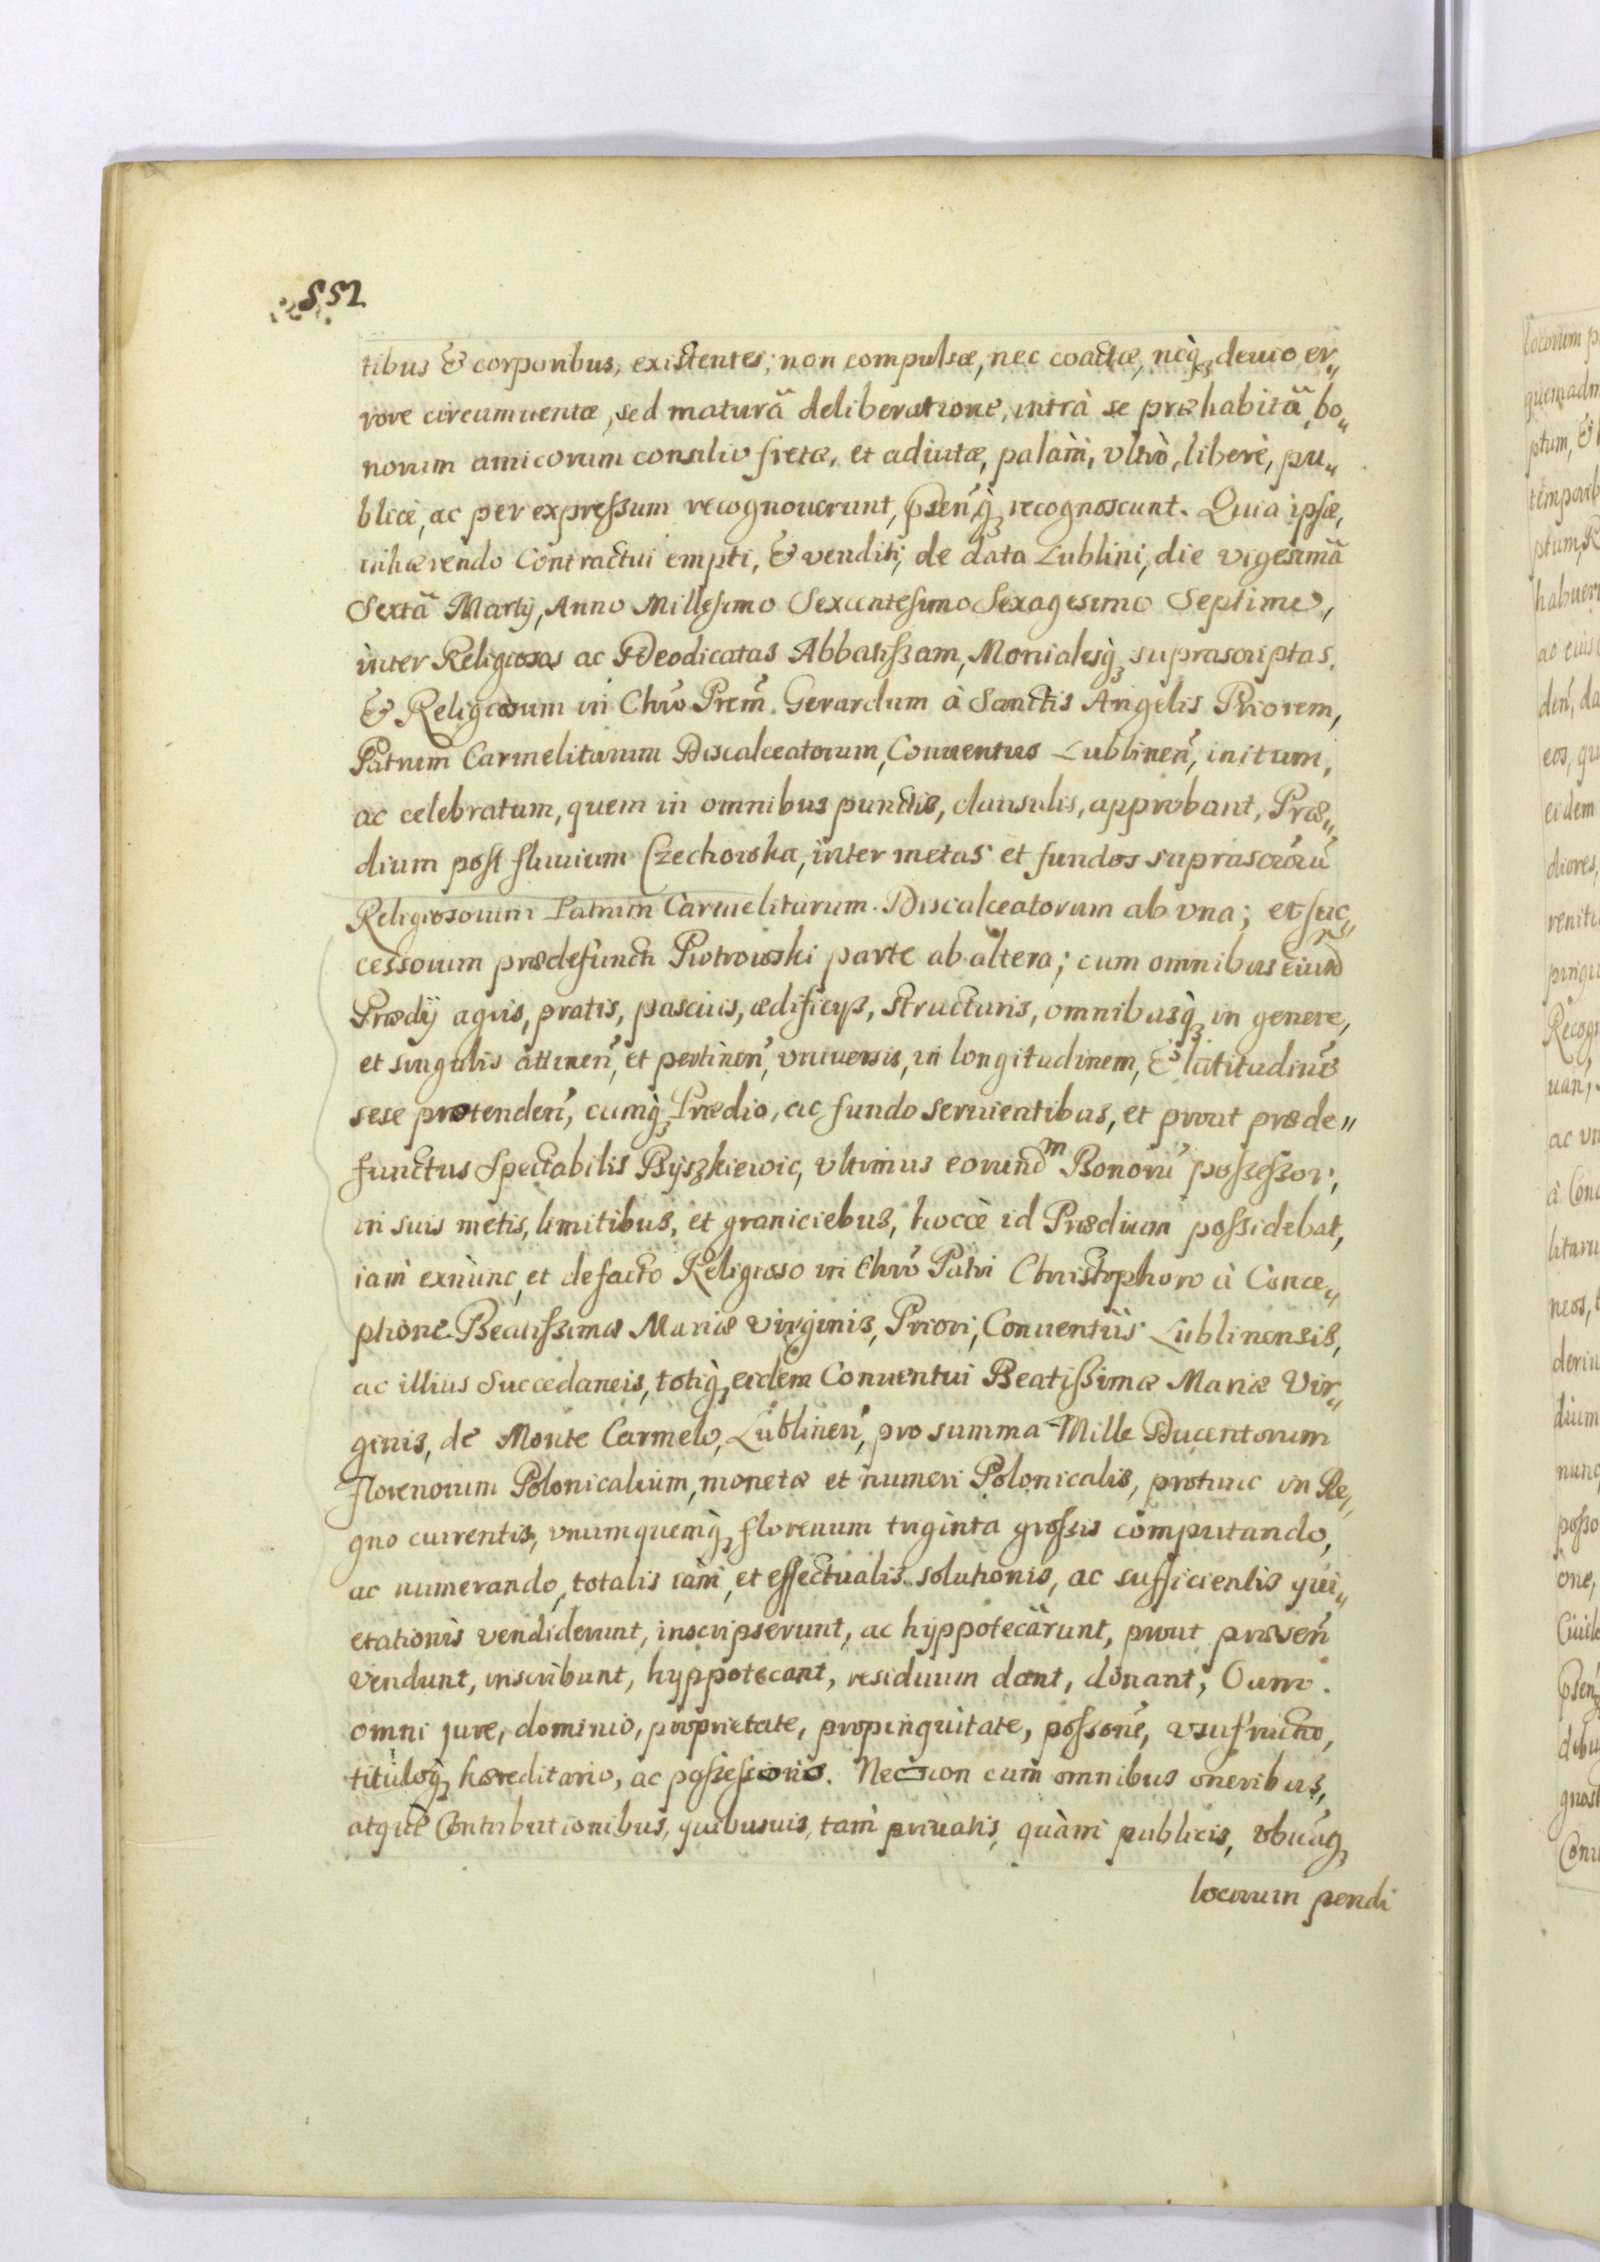 552
tibus & corporibus, existentes; non compulsæ, nec coactæ, neq́ȝ deuio er„
rore circumuentæ, sed maturâ deliberatione, intrà se præhabitâ, bo„
norum amicorum consilio fretæ, et adiutæ, palàm, vltrò, liberè, pu„
blicè, ac per expreſsum recognouerunt, pśenq́ȝ recognoscunt. Quia ipſæ,
inhærendo Contractui empti, & venditi, de data Lublini, die vigesimâ
Sextâ Martij, Anno Milleſimo Sexcenteſimo Sexagesimo Septimo,
inter Religiosas ac Deodicatas Abbatiſsam, Monialesq́ȝ suprascriptas.
& Religiosum in Chrō Prem̃. Gerardum à Sanctis Angelis Priorem,
Patrum Carmelitarum Discalceatorum, Conuentus Lublinen̄, initum,
ac celebratum, quem in omnibus punctis, clausulis, approbant, Præ„
dium poſt fluuium Czechowka, inter metas et fundos suprascr̄orū
Religiosorum Patrum Carmelitarum Discalceatorum ab vna; et ſuc„
cessorum prædefuncti Piotrowski parte ab altera; cum omnibus eiusd̄
Prædij agris, pratis, pascuis, ædificijs, structuris, omnibusq́ȝ in genere,
et singulis attinen̄, et pertinen̄, vniuersis, in longitudinem, & latitudinē
sese protenden̄, cumq́ȝ Prædio, ac fundo seruientibus, et prout præde„
functus Spectabilis Byszkiewic, vltimus eorund̄m Bonorū poſseſsor,
in suis metis, limitibus, et graniciebus, hoccè id Prædium poſsidebat,
iam exnunc, et defacto Religioso in Chrō Patri Christophoro à Conce„
ptione Beatiſsimæ Mariæ virginis, Priori, Conuentûs Lublinensis,
ac illius Succedaneis, totiq́ȝ eidem Conuentui Beatiſsimæ Mariæ Vir„
ginis, de Monte Carmelo, Lublinen̄, pro summa Mille Ducentorum
Florenorum Polonicalium, monetæ et numeri Polonicalis, protunc in Re„
gno currentis, vnumquemq́ȝ florenum triginta groſsis computando,
ac numerando, totalis iam, et effectualis solutionis, ac sufficientis qui„
etationis vendiderunt, inscripserunt, ac hyppotecârunt, prout præsen̄
vendunt, inscribunt, hyppotecant, residuum dant, donant, Cum
omni jure, dominio, proprietate, propinquitate, poſsonē, vsufructo,
titùloq́ȝ hæreditario, ac poſseſsorio. Necnon cum omnibus oneribus,
atquè Contributionibus, quibusuis, tam priuatis, quàm publicis, vbiuisq́ȝ
locorum pendi